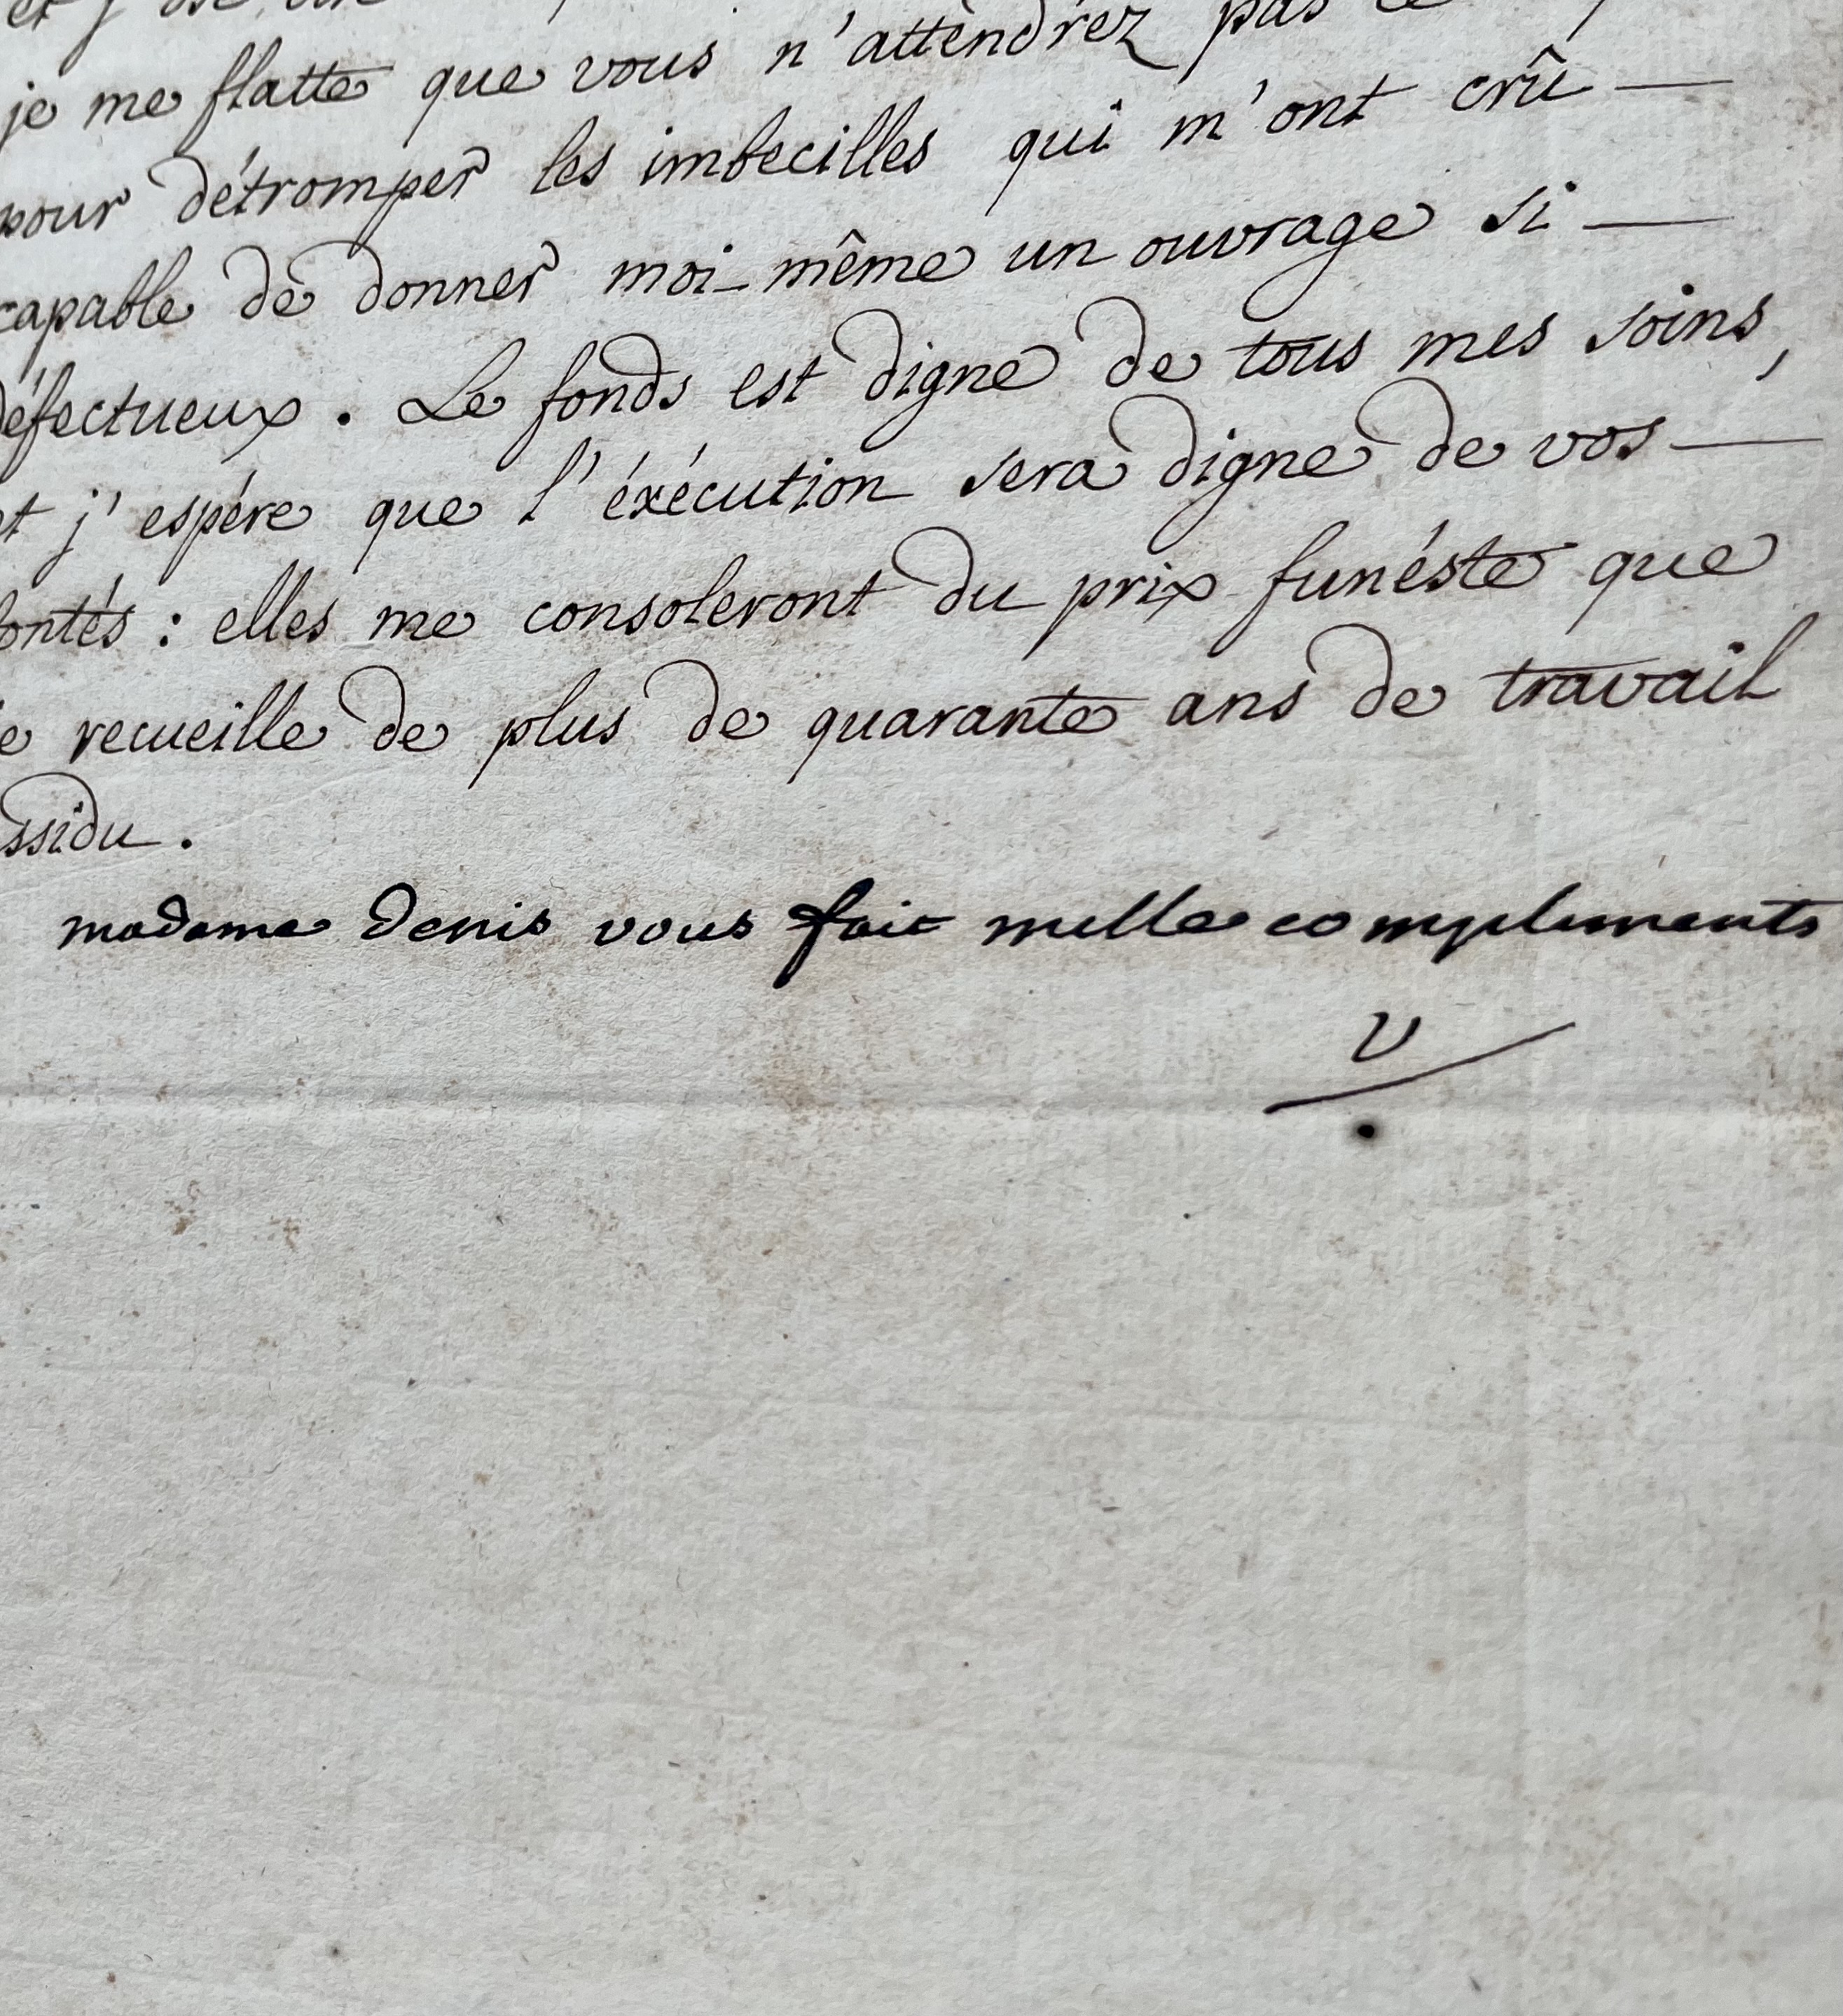 je me flatte que vous n'attendrez pas
pour détromper les imbecilles qui m'ont crû —
capable de donner moi-même un ouvrage si —
défectueux. Le fonds est digne de tous mes soins,
et j'espére que l'éxécution sera digne de vos —
bontés : elles me consoleront du prix funéste que
je recueille de plus de quarante ans de travail
assidu.
madame Denis vous fait mille compliments
V